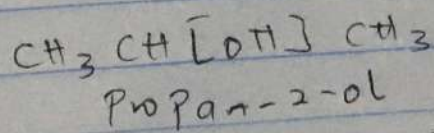 CH₃ CH [OH] CH₃
Propan-2-ol